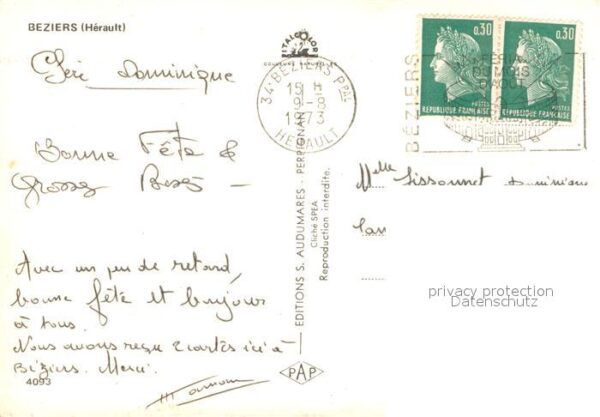 BEZIERS (Hérault)
ITALCOLOR
COULEURS NATURELLES
Chéri Dominique
Bonne Fête &
Grosses Bises
Avec un peu de retard,
bonne fête et bonjour
à tous.
Nous avons reçu 2 cartes ici à
Béziers. Merci.
4093
34-BEZIERS PPAL
15 H
9-8
1973
HERAULT
EDITIONS S. AUDUMARES - PERPIGNAN
Cliché SPEA
Reproduction interdite.
PAP
0,30
0,30
POSTES
REPUBLIQUE FRANÇAISE
POSTES
REPUBLIQUE FRANÇAISE
BÉZIERS
DU MOIS
D'AOUT
Melle Sissonnet Dominique
privacy protection
Datenschutz